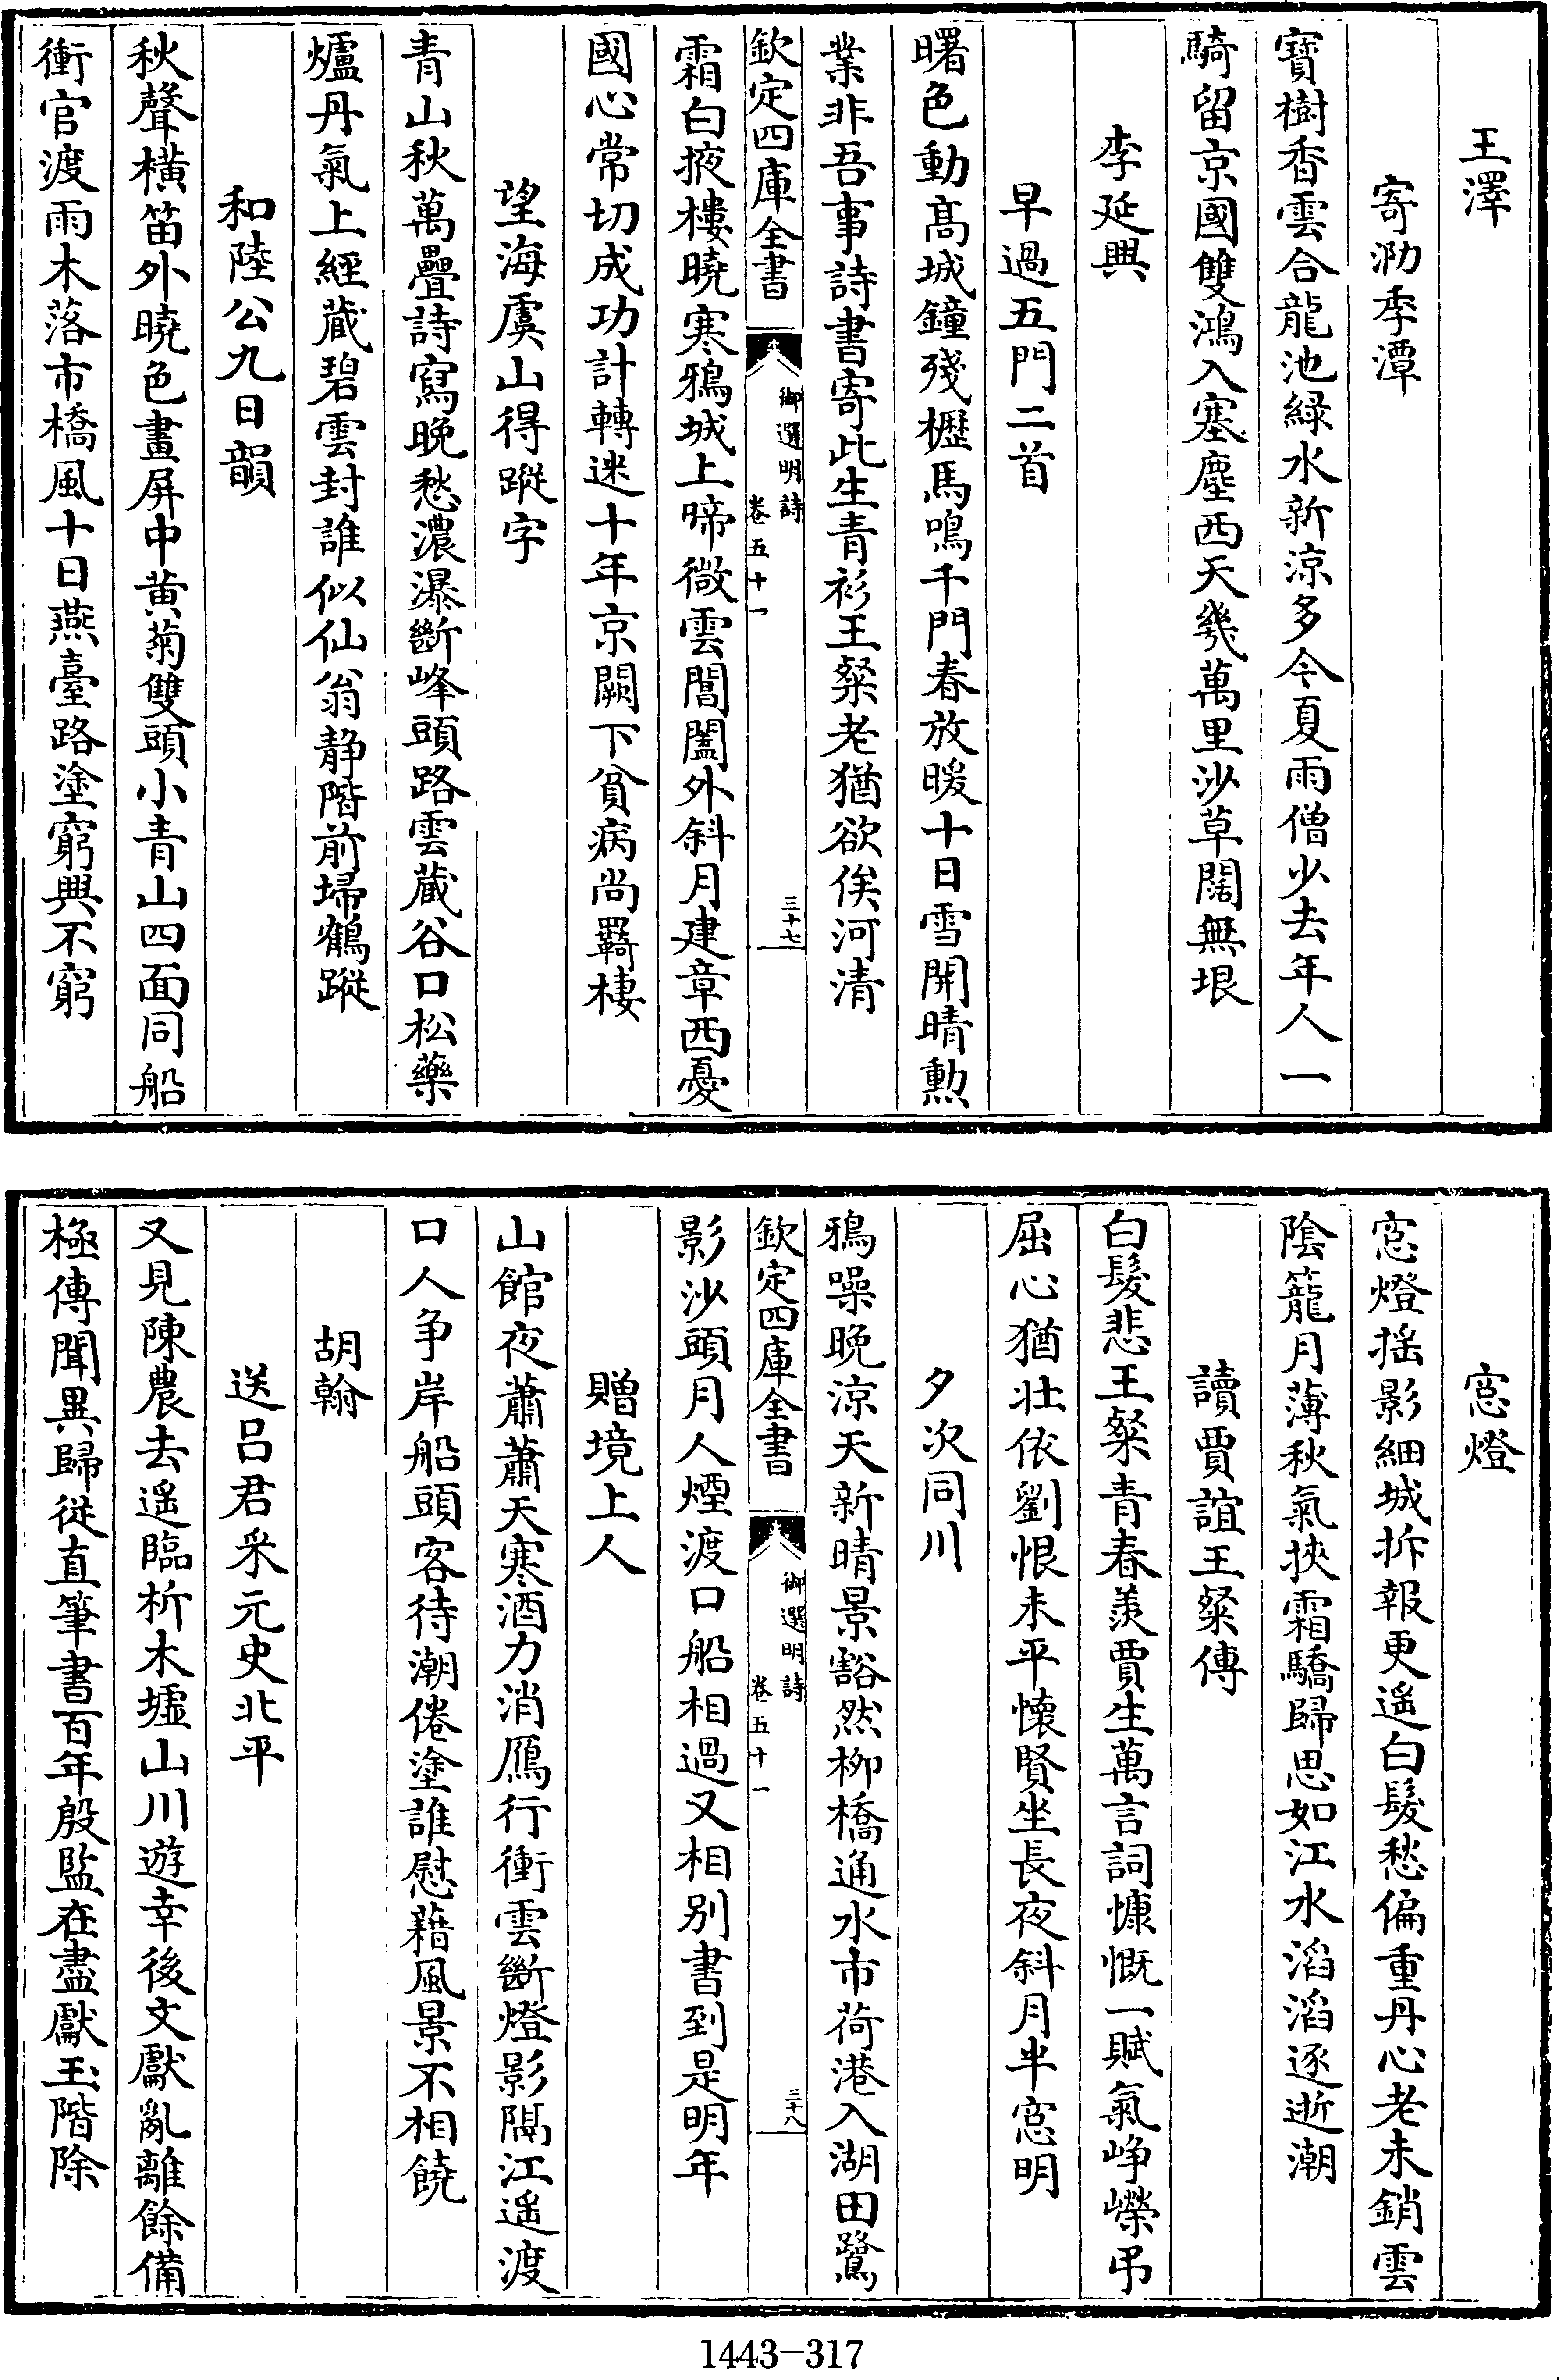 王澤
寄泐季潭
寶樹香雲合龍池緑水新涼多今夏雨僧少去年人一
騎留京國雙鴻入塞塵西天幾萬里沙草闊無垠
李延興
早過五門二首
曙色動髙城鐘殘櫪馬鳴千門春放暖十日雪開晴勲
業非吾事詩書寄此生青衫王粲老猶欲俟河清
欽定四庫全書
御選明詩
卷五十一
三十七
霜白掖樓曉寒鴉城上啼微雲閶闔外斜月建章西憂
國心常切成功計轉迷十年京闕下貧病尚羇棲
望海虞山得蹤字
青山秋萬疊詩寫晚愁濃瀑斷峰頭路雲蔵谷口松藥
爐丹氣上經蔵碧雲封誰似仙翁静階前埽鶴蹤
和陸公九日韻
秋聲橫笛外曉色畫屏中黄菊雙頭小青山四面同船
衝官渡雨木落市橋風十日燕臺路塗窮興不窮
窓燈
窓燈揺影細城拆報更遥白髮愁偏重丹心老未銷雲
陰籠月薄秋氣挾霜驕歸思如江水滔滔逐逝潮
讀賈誼王粲傳
白髮悲王粲青春羨賈生萬言詞慷慨一賦氣峥嶸弔
屈心猶壮依劉恨未平懐賢坐長夜斜月半窓明
夕次同川
鴉噪晚凉天新晴景豁然柳橋通水市荷港入湖田鷺
欽定四庫全書
御選明詩
卷五十一
三十八
影沙頭月人煙渡口船相過又相别書到是明年
贈境上人
山館夜蕭蕭天寒酒力消鴈行衝雲斷燈影隔江遥渡
口人争岸船頭客待潮倦塗誰慰藉風景不相饒
胡翰
送吕君采元史北平
又見陳農去遥臨析木墟山川遊幸後文獻亂離餘備
極傳聞異歸從直筆書百年殷監在盡獻玉階除
1443-317